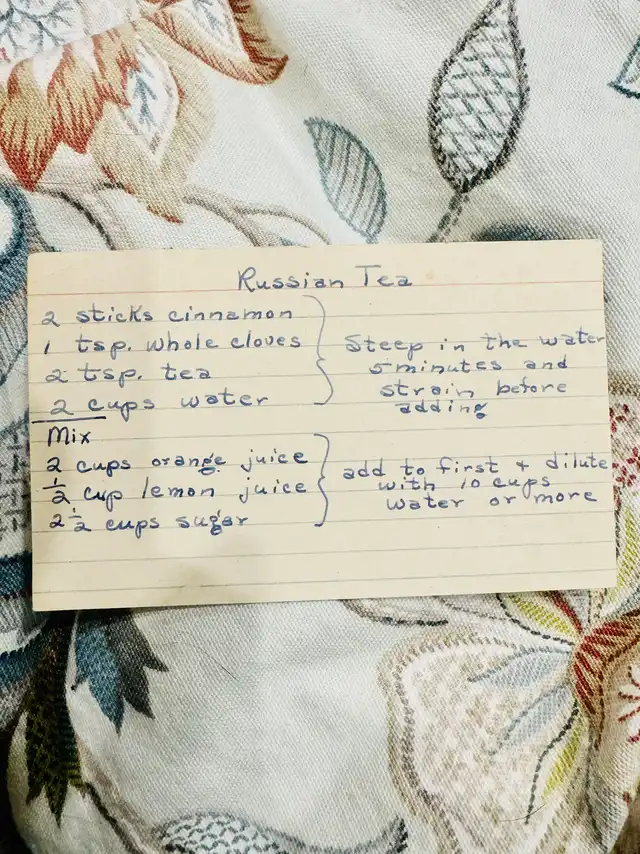 Russian Tea
2 sticks cinnamon
1 tsp. whole cloves
2 tsp. tea
2 cups water
Steep in the water
5 minutes and
strain before
adding
Mix
2 cups orange juice
1/2 cup lemon juice
2 1/2 cups sugar
add to first + dilute
with 10 cups
water or more